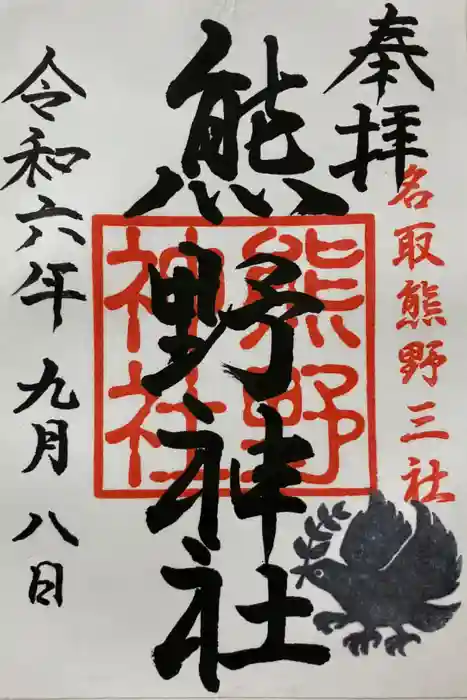 奉拝
名取熊野三社
熊野神社
熊野神社
令和六年九月八日